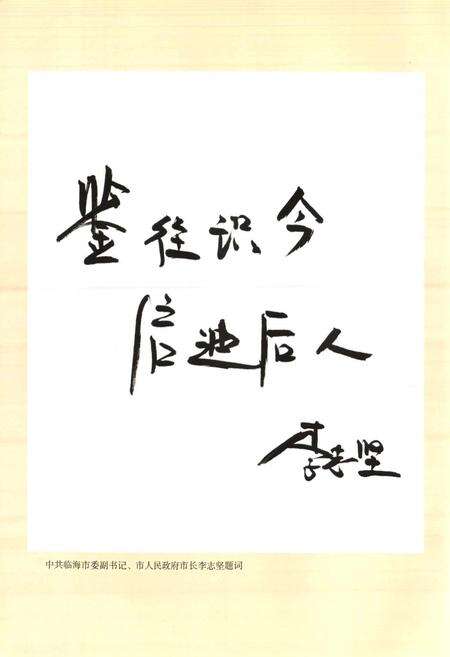 鉴往识今
启迪后人
李志坚
中共临海市委副书记、市人民政府市长李志坚题词